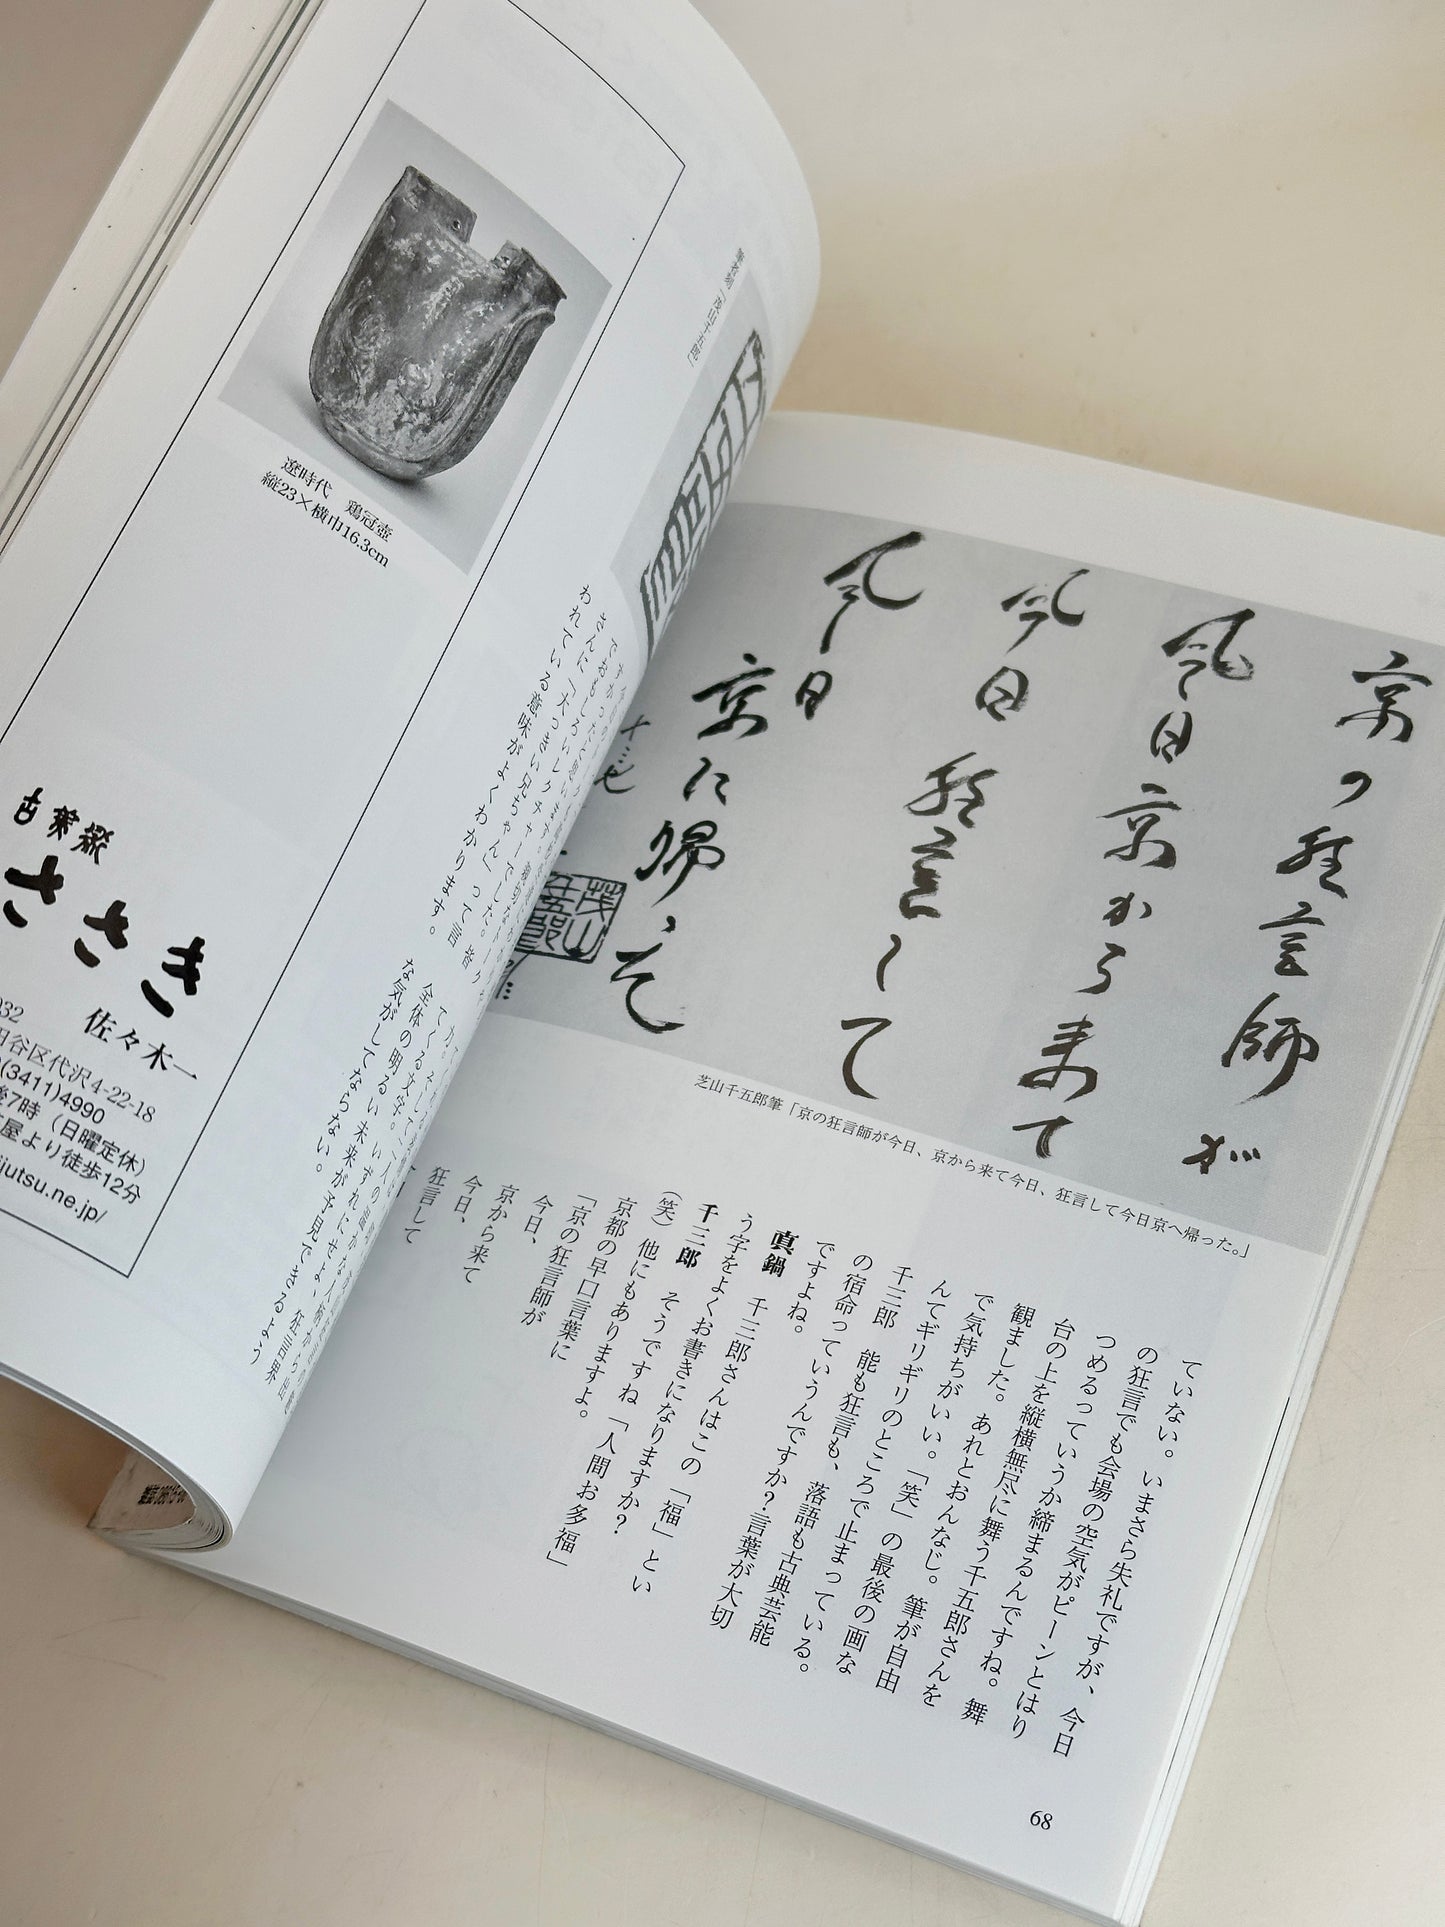 京の狂言師が
今日京から来て
今日狂言して
今日
京に帰った
茂山
芝山千五郎筆「京の狂言師が今日、京から来て今日、狂言して今日京へ帰った。」
ていない。いまさら失礼ですが、今日
の狂言でも会場の空気がピーンとはり
つめるっていうか締まるんですね。舞
台の上を縦横無尽に舞う千五郎さんを
観ました。あれとおんなじ。筆が自由
で気持ちがいい。「笑」の最後の画な
んてギリギリのところで止まっている。
千三郎　能も狂言も、落語も古典芸能
の宿命っていうんですか？言葉が大切
ですよね。
真鍋　千三郎さんはこの「福」とい
う字をよくお書きになりますか？
千三郎　そうですね「人間お多福」
（笑）他にもありますよ。
京都の早口言葉に
「京の狂言師が
今日、
京から来て
今日、
狂言して
68
遼時代　鶏冠壺
縦23×横巾16.3cm
さんに「大っきい兄ちゃん」って言
われている意味がよくわかります。
全体の明るい未来が予見できるよう
な気がしてならない。
古美術
ささき
佐々木一
032
田谷区代沢4-22-18
(3411)4990
後7時（日曜定休）
屋より徒歩12分
ijutsu.ne.jp/